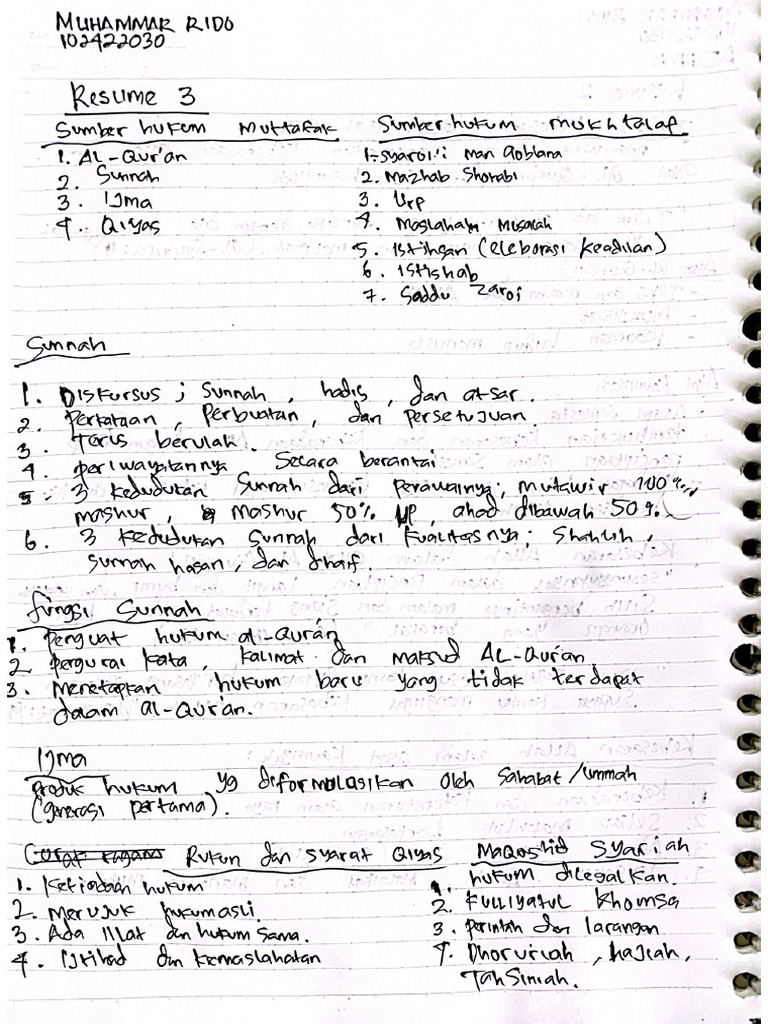 MUHAMMAR RIDO
102422030
Resume 3
Sumber hukum Muttafak
1. AL-Qur'an
2. Sunnah
3. Ijma
4. Qiyas
Sumber hukum mukhtalaf
1. syaro'i man qoblana
2. Mazhab Shohabi
3. Urp
4. Maslahah Musalah
5. istihsan (eleborasi keadilan)
6. istishab
7. Saddu zaroi
Sunnah
1. Diskursus ; Sunnah, hadis, dan atsar.
2. Perkataan, Perbuatan, dan Persetujuan.
3. Terus berulah.
4. periwayatannya Secara berantai
5. 3 kedudukan Sunnah dari perawainya; mutawir 100%,
mashur, mashur 50% up, ahad dibawah 50%.
6. 3 kedudukan Sunnah dari kualitasnya; Shahih,
sunnah hasan, dan dhaif.
fungsi Sunnah
1. penguat hukum al-Qur'an
2. pengurai kata, kalimat dan maksud AL-Qur'an
3. Menetapkan hukum baru yang tidak terdapat
daam al-Qur'an.
Ijma
produk hukum yg diformulasikan oleh Sahabat/ummah
(generasi pertama).
Rukun dan syarat Qiyas
1. Ketiadaan hukum
2. Merujuk hukum asli.
3. Ada illat dan hukum sama.
4. Ijtihad dan kemaslahatan
Maqoshid Syariah
1. hukum dilegalkan.
2. Kulliyatul khomsa
3. perintah dan larangan
4. Dhoruriah, hajiah,
Tahsiniah.